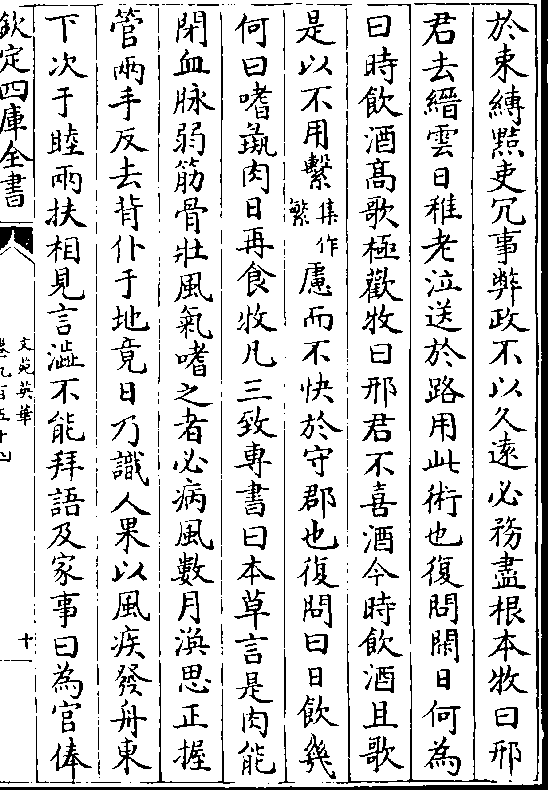 於束縛黠吏冗事弊政不以久遠必務盡根本牧曰邢
君去縉雲日稚老泣送於路用此術也復問閑日何為
曰時飲酒高歌極歡牧曰邢君不喜酒今時飲酒且歌
是以不用繫集作繁慮而不快於守郡也復問曰日飲幾
何曰嗜彘肉日再食牧凡三致專書曰本草言是肉能
閉血脉弱筋骨壯風氣嗜之者必病風數月渙思正握
管兩手反去背仆于地竟日乃識人果以風疾發舟東
下次于睦兩扶相見言澁不能拜語及家事曰為官俸
欽定四庫全書
文苑英華
卷九百五十四
十